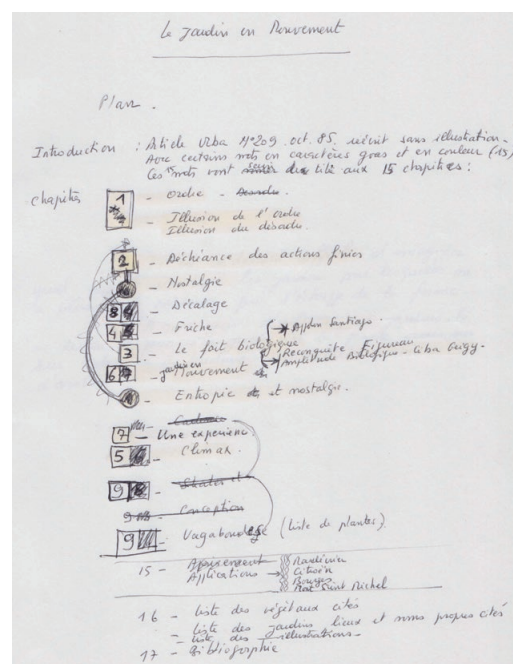 Le Jardin en Mouvement
Plan.
Introduction : Article Urba N°209. oct. 85. réécrit sans illustration.
Avec certains mots en caractères gras et en couleur (15)
Ces mots vont servir de titre aux 15 chapitres :
Chapitres 1 - Ordre - Désordre
- Illusion de l'ordre
Illusion du désordre.
2 - Déchéance des actions finies
- Nostalgie
8 - Décalage
4 - Friche
3 - Le fait biologique
Santiago.
Reconquête
Amplitude Biologique - Ciba Geigy.
6 - jardin en Mouvement
- Entropie et nostalgie.
7 - Une expérience
5 - Climax.
9 -
9 - Conception
9 - Vagabondage (liste de plantes).
15 - Applications → Citroën
Bourges
Parc Saint Michel
16 - liste des végétaux cités
- liste des jardins lieux et noms propres cités
- liste des illustrations -
17 - Bibliographie